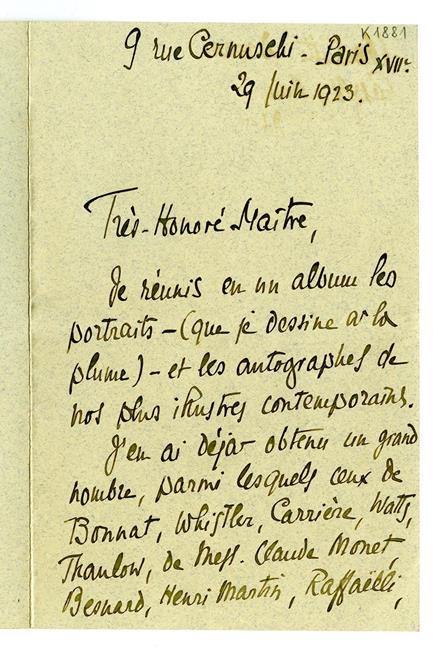 K1881
9 rue Cernuschi - Paris XVIIe
29 Juin 1923.
Très-Honoré Maître,
Je réunis en un album les
portraits - (que je dessine à la
plume) - et les autographes de
nos plus illustres contemporains.
J'en ai déjà obtenu un grand
nombre, parmi lesquels ceux de
Bonnat, Whistler, Carrière, Watts,
Thaulow, de Mess. Claude Monet,
Besnard, Henri Martin, Raffaëlli,